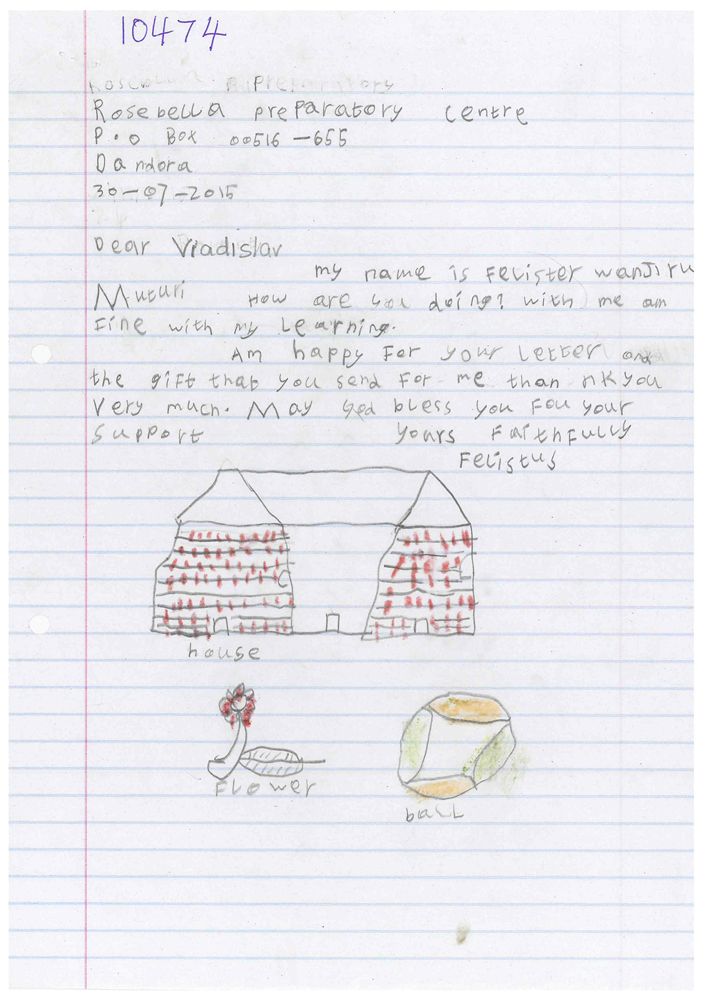 10474
Preparatory
Rosebella preparatory centre
P.o Box 00516-655
Dandora
30-07-2015
Dear Vradislav
my name is Felister wanjiru
Muturi How are you doing? with me am
Fine with my Learning.
Am happy For your Letter and
the gift that you send For me than nk you
Very much. May God bless you Fou your
Support yours Faithfully
Felistus
house
Flower
ball